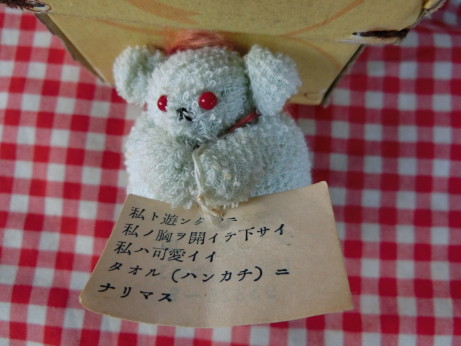 私ト遊ン
私ノ胸ヲ開イテ下サイ
私ハ可愛イイ
タオル（ハンカチ）ニ
ナリマス